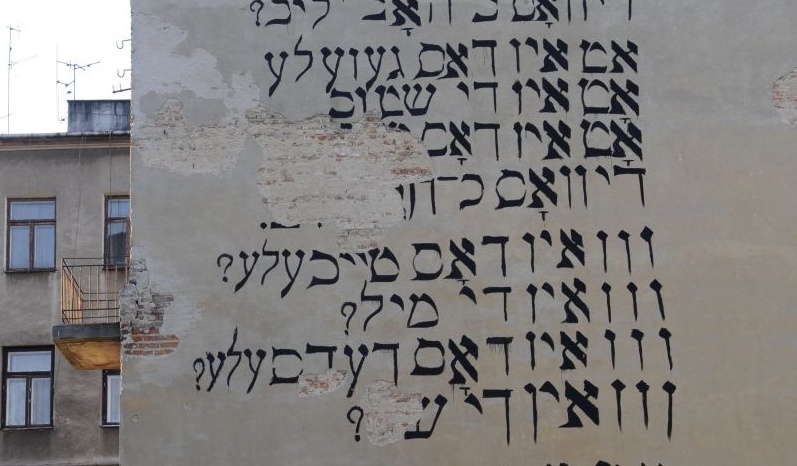 די וואָס כ'האָב ליב?
אָט איז דאָס געזעלע
אָט איז די שטוב
אָט איז דאָס
די וואָס
ווו איז דאָס טייכעלע?
ווו איז די מיל?
ווו איז דאָס דערפעלע?
ווו איז די